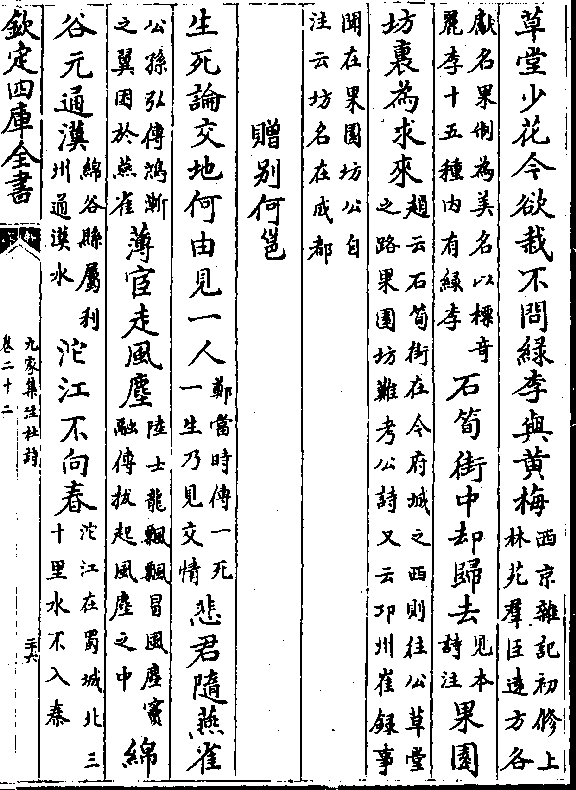 草堂少花今欲栽不問緑李與黄梅西京雜記初修上
林苑羣臣逺方各
獻名果例為美名以標奇
麗李十五種内有緑李石筍街中却歸去見本
詩注果園
坊裏為求來趙云石筍街在今府城之西則往公草堂
之路果園坊難考公詩又云卭州崔録事
聞在果園坊公自
注云坊名在成都
贈别何邕
生死論交地何由見一人鄭當時傳一死
一生乃見交情悲君隨燕雀
公孫弘傳鴻漸
之翼困於燕雀薄宦走風塵陸士龍飄飄冒風塵竇
融傳拔起風塵之中綿
谷元通漢綿谷縣屬利
州通漢水沱江不向秦沱江在蜀城北三
十里水不入秦
欽定四庫全書
九家集注杜詩
卷二十二